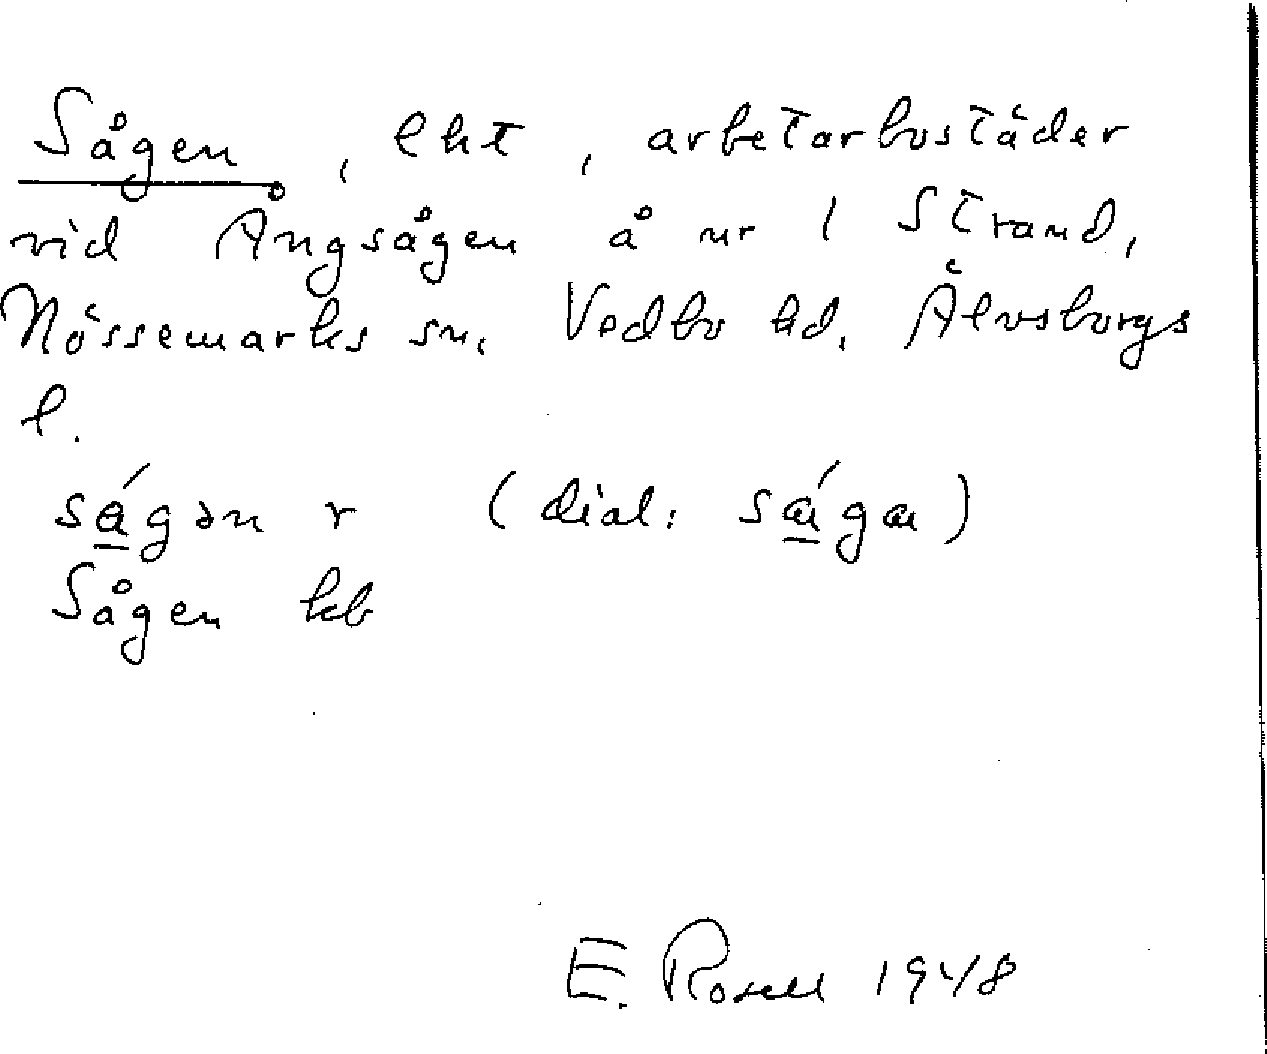 Sågen, lht, arbetarbostäder
vid Ångsågen å nr 1 Strand,
Nössemarks sn. Vedbo hd. Älvsborgs
l.
ságən r (dial: sága)
Sågen kb
E. Rosell 1948